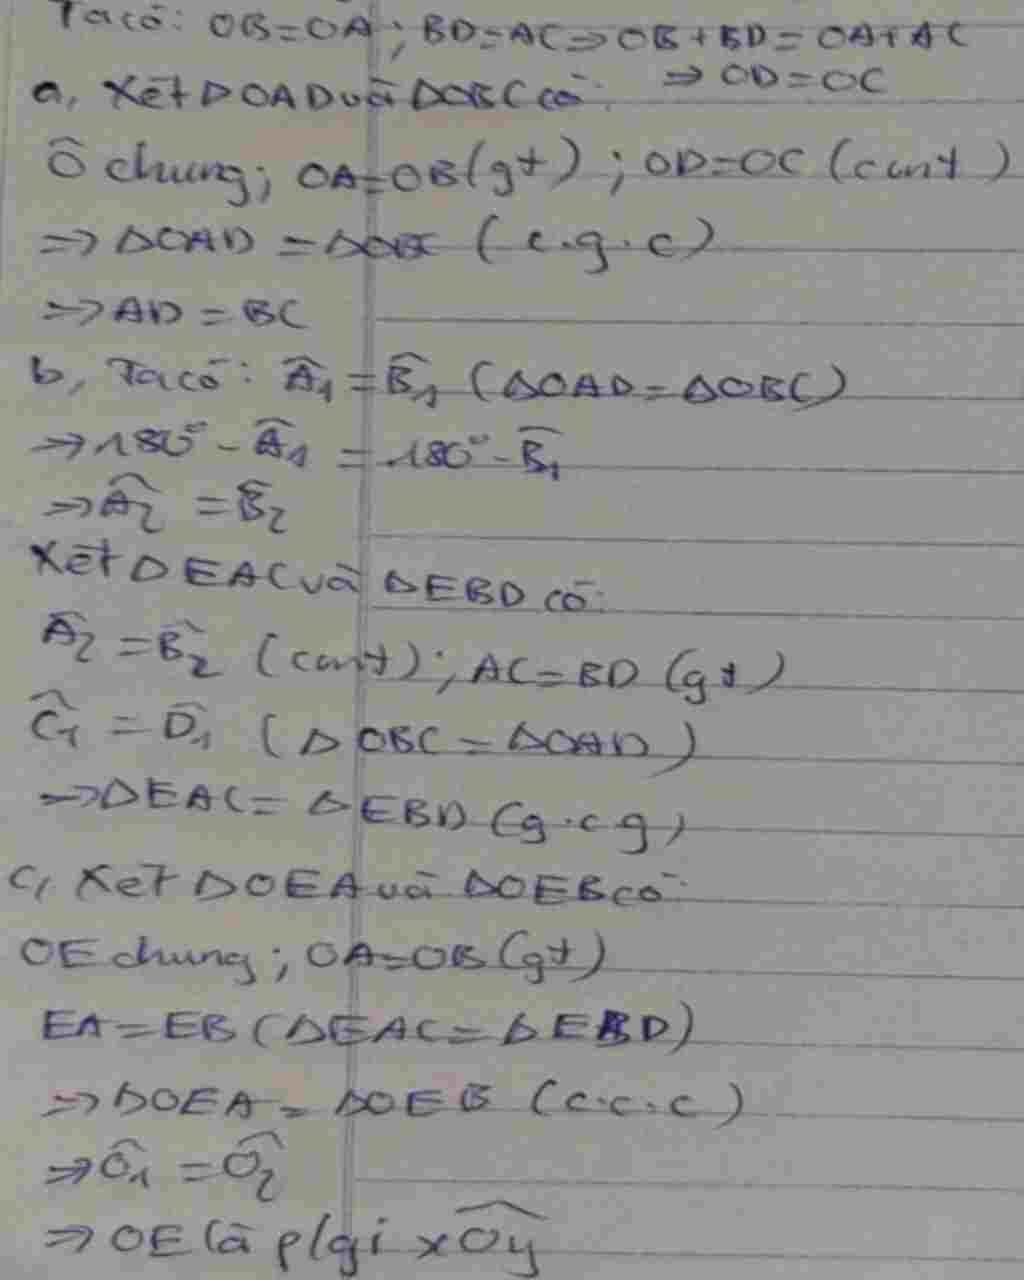 Ta có: OB=OA; BD=AC⇒OB+BD=OA+AC
⇒ OD=OC
a, Xét ΔOAD và ΔOBC có:
Ô chung; OA=OB(gt); OD=OC (cmt)
⇒ ΔOAD = ΔOBC (c.g.c)
⇒ AD = BC
b, Ta có: Â₁ = B̂₁ (ΔOAD = ΔOBC)
⇒ 180° - Â₁ = 180° - B̂₁
⇒ Â₂ = B̂₂
Xét ΔEAC và ΔEBD có:
Â₂ = B̂₂ (cmt); AC=BD (gt)
Ĉ₁ = D̂₁ (ΔOBC = ΔOAD)
⇒ ΔEAC = ΔEBD (g.c.g)
c, Xét ΔOEA và ΔOEB có:
OE chung; OA=OB (gt)
EA=EB (ΔEAC = ΔEBD)
⇒ ΔOEA = ΔOEB (c.c.c)
⇒ Ô₁ = Ô₂
⇒ OE là p/gi xÔy